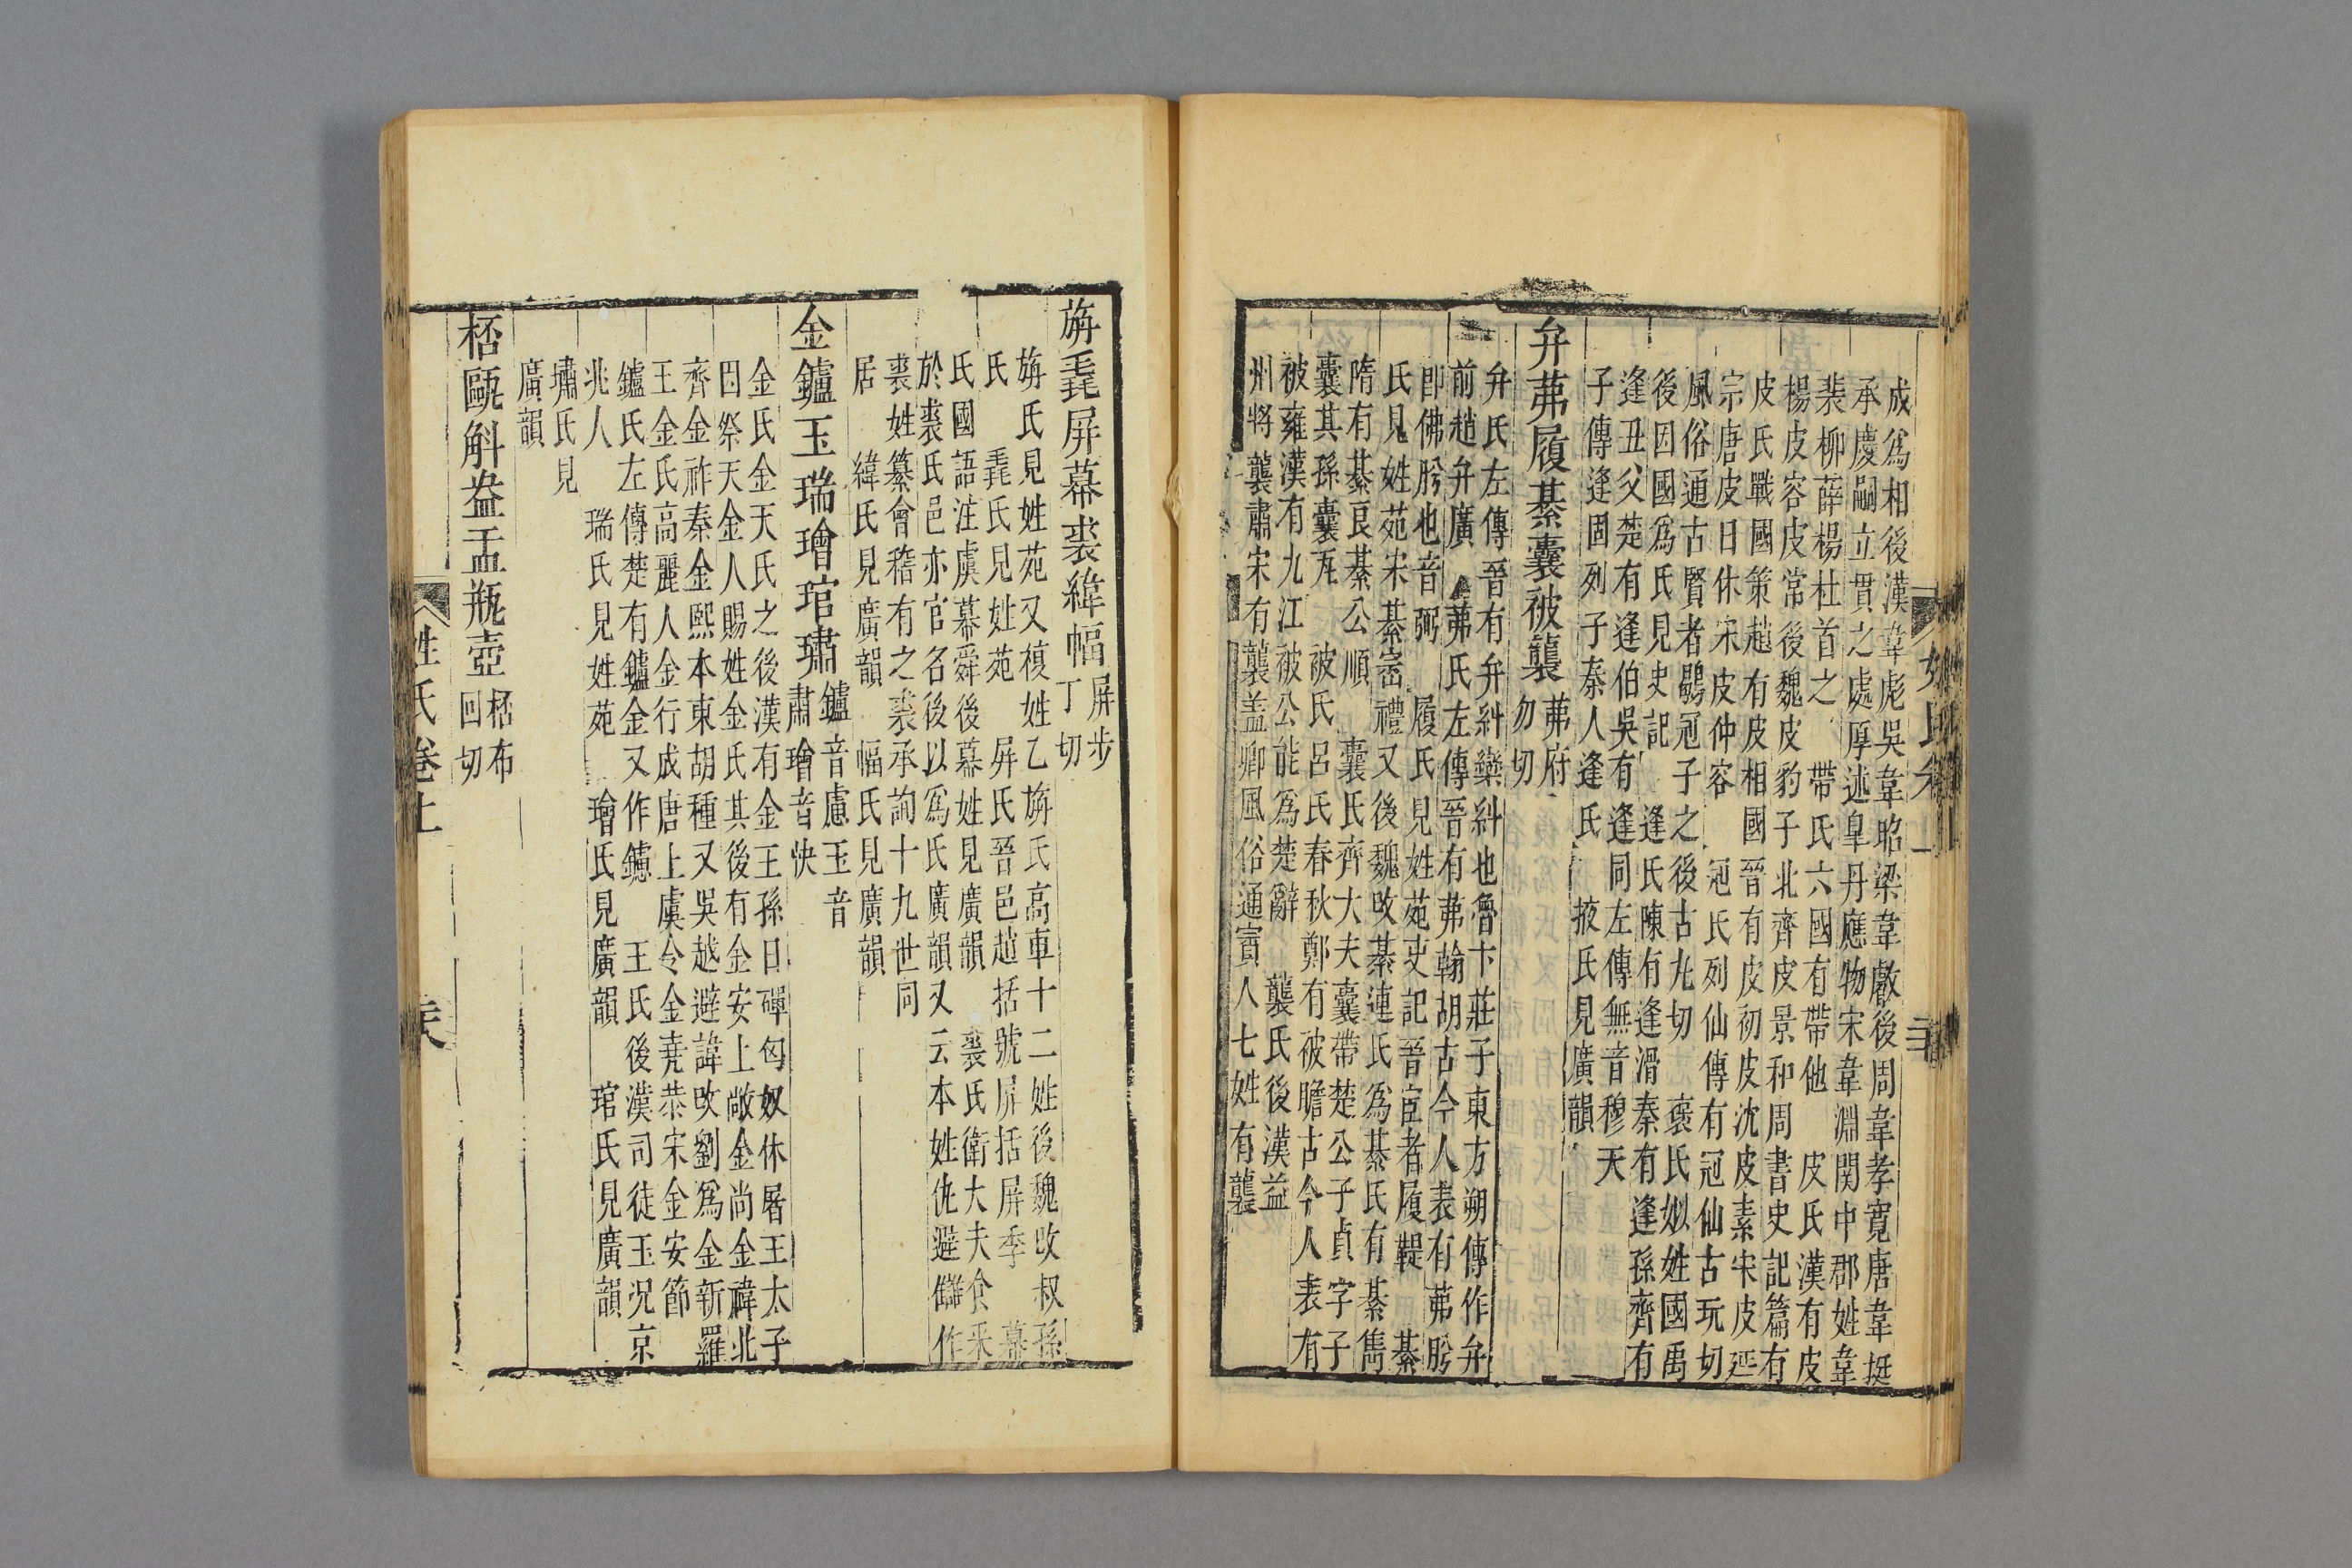 成爲相後漢韋彪吳韋昭梁韋叡後周韋孝寬唐韋挺
承慶嗣立貫之處厚述臯丹應物宋韋淵関中郡姓韋
裴柳薛楊杜首之 帶氏六國有帶他 皮氏漢有皮
楊皮容皮常後魏皮豹子北齊皮景和周書史記篇有
皮氏戰國策趙有皮相國晉有皮初皮沈皮素宋皮延
宗唐皮日休宋皮仲容 冠氏列仙傳有冠仙古玩切
風俗通古賢者鶡冠子之後古丸切 裒氏姒姓國禹
後因國爲氏見史記 逢氏陳有逢滑秦有逢孫齊有
逢丑父楚有逢伯吳有逢同左傳無音穆天
子傳逢固列子秦人逢氏 掖氏見廣韻
弁茀履綦囊被襲 茀府
勿切
弁氏左傳晉有弁糾欒糾也魯卞莊子東方朔傳作弁
前趙弁廣 茀氏左傳晉有茀翰胡古今人表有茀肸
即佛肸也音弼 履氏見姓苑史記晉宦者履鞮 綦
氏見姓苑宋綦崈禮又後魏攺綦連氏爲綦氏有綦雋
隋有綦良綦公順 囊氏齊大夫囊帶楚公子貞字子
囊其孫囊瓦 被氏呂氏春秋鄭有被瞻古今人表有
被雍漢有九江被公能爲楚辭 襲氏後漢益
州將襲肅宋有襲盖卿風俗通賨人七姓有襲
旃毳屏幕裘緯幅 屏步
丁切
旃氏見姓苑又複姓乙旃氏高車十二姓後魏攺叔孫
氏 毳氏見姓苑 屏氏晉邑趙括號屏括屏季 幕
氏國語注虞幕舜後幕姓見廣韻 裘氏衛大夫食釆
於裘氏邑亦官名後以爲氏廣韻又云本姓仇避讎作
裘姓纂會稽有之裘承詢十九世同
居 緯氏見廣韻 幅氏見廣韻
金鑢玉瑞璯琯璛 鑢音慮玉音
肅璯音快
金氏金天氏之後漢有金王孫日磾匈奴休屠王太子
因祭天金人賜姓金氏其後有金安上敞金尚金禕北
齊金祚秦金熙本東胡種又吳越避諱攺劉爲金新羅
王金氏高麗人金行成唐上虞令金堯恭宋金安節
鑢氏左傳楚有鑢金又作鑢 王氏後漢司徒玉况京
兆人 瑞氏見姓苑 璯氏見廣韻 琯氏見廣韻
璛氏見
廣韻
桮甌斛盎盂瓶壺 桮布
回切
姓氏卷上